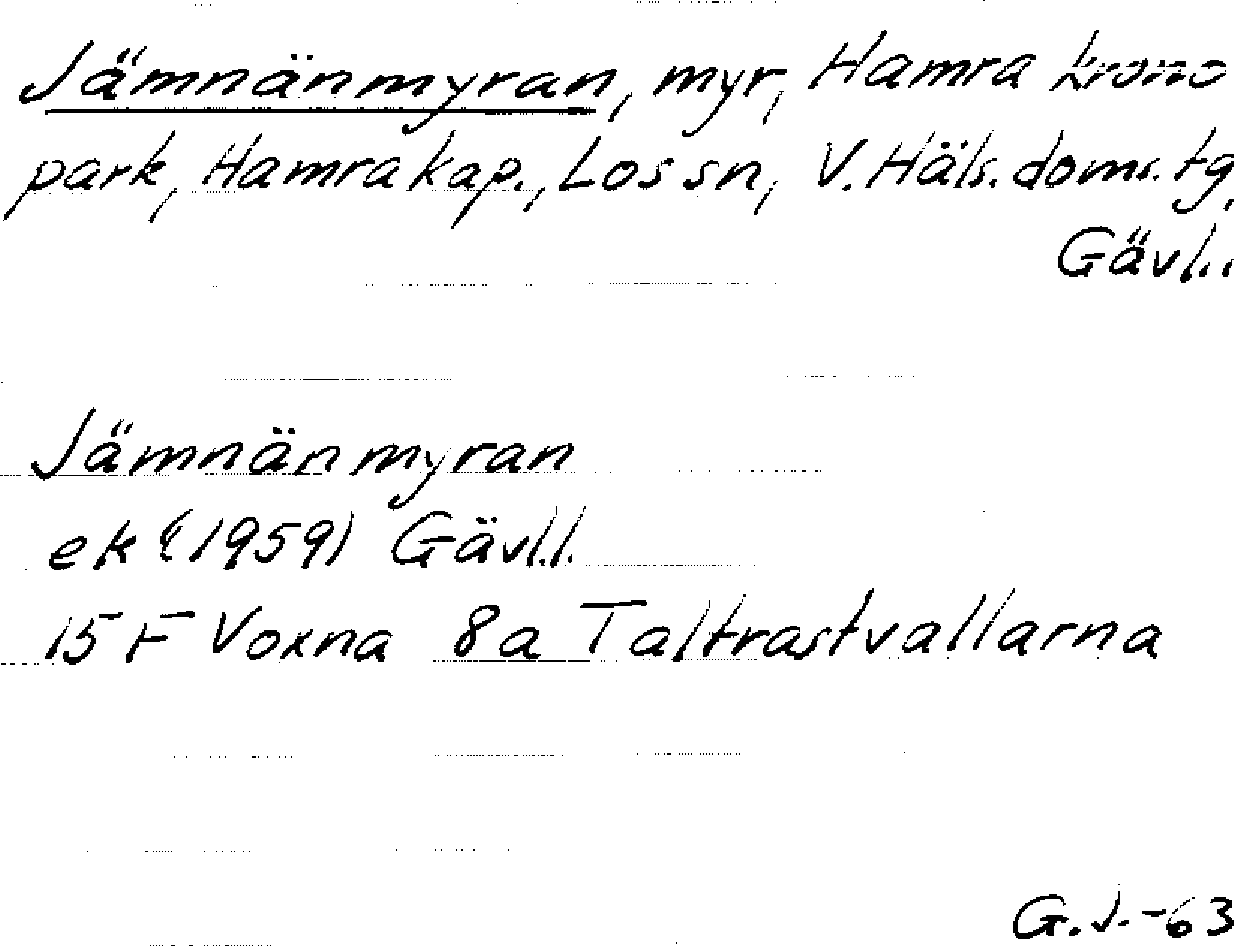 Jämnänmyran, myr, Hamra krono
park, Hamra kap., Los sn, V. Häls. doms. tg,
Gävl.l.
Jämnänmyran
ek (1959) Gävl.l.
15 F Voxna 8a Taltrastvallarna
G.J.-63